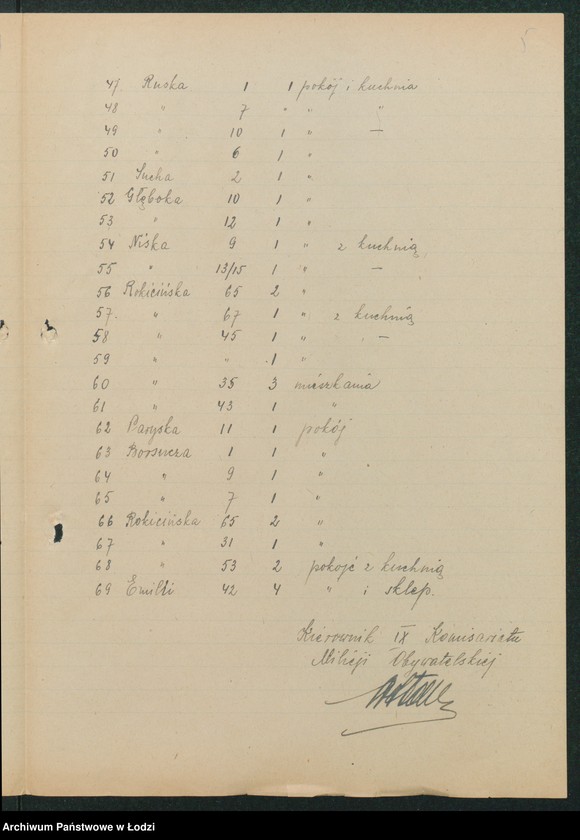 5
47. Ruska 1 1 pokój i kuchnia
48 " 7 " " "
49 " 10 1 " —
50 " 6 1 "
51 Sucha 2 1 "
52 Głęboka 10 1 "
53 " 12 1 "
54 Niska 9 1 " z kuchnią
55 " 13/15 1 " —
56 Rokicińska 65 2 "
57. " 67 1 " z kuchnią
58 " 45 1 " " —
59 " " 1 "
60 " 35 3 mieszkania
61 " 43 1 "
62 Paryska 11 1 pokój
63 1 1 "
64 " 9 1 "
65 " 7 1 "
66 Rokicińska 65 2 "
67 " 31 1 "
68 " 53 2 pokoje z kuchnią
69 Emilii 42 4 " i sklep.
Kierownik IX Komisariatu
Milicji Obywatelskiej
Archiwum Państwowe w Łodzi